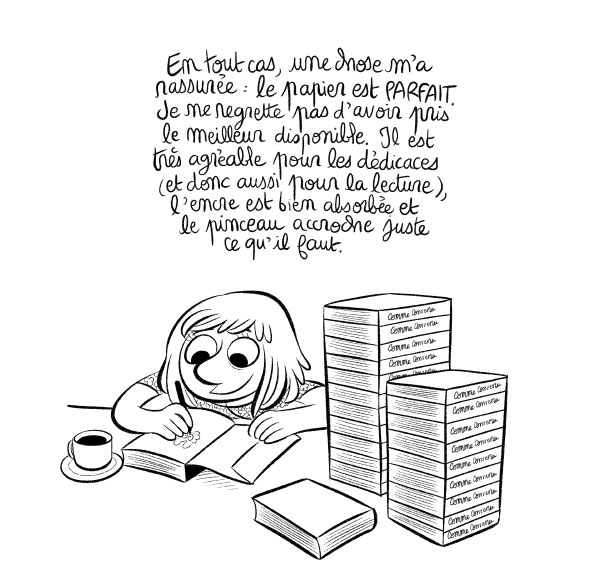 En tout cas, une chose m'a
rassurée : le papier est PARFAIT.
Je ne regrette pas d'avoir pris
le meilleur disponible. Il est
très agréable pour les dédicaces
(et donc aussi pour la lecture),
l'encre est bien absorbée et
le pinceau accroche juste
ce qu'il faut.
Comme convenu
Comme convenu
Comme convenu
Comme convenu
Comme convenu
Comme convenu
Comme convenu
Comme convenu
Comme convenu
Comme convenu
Comme convenu
Comme convenu